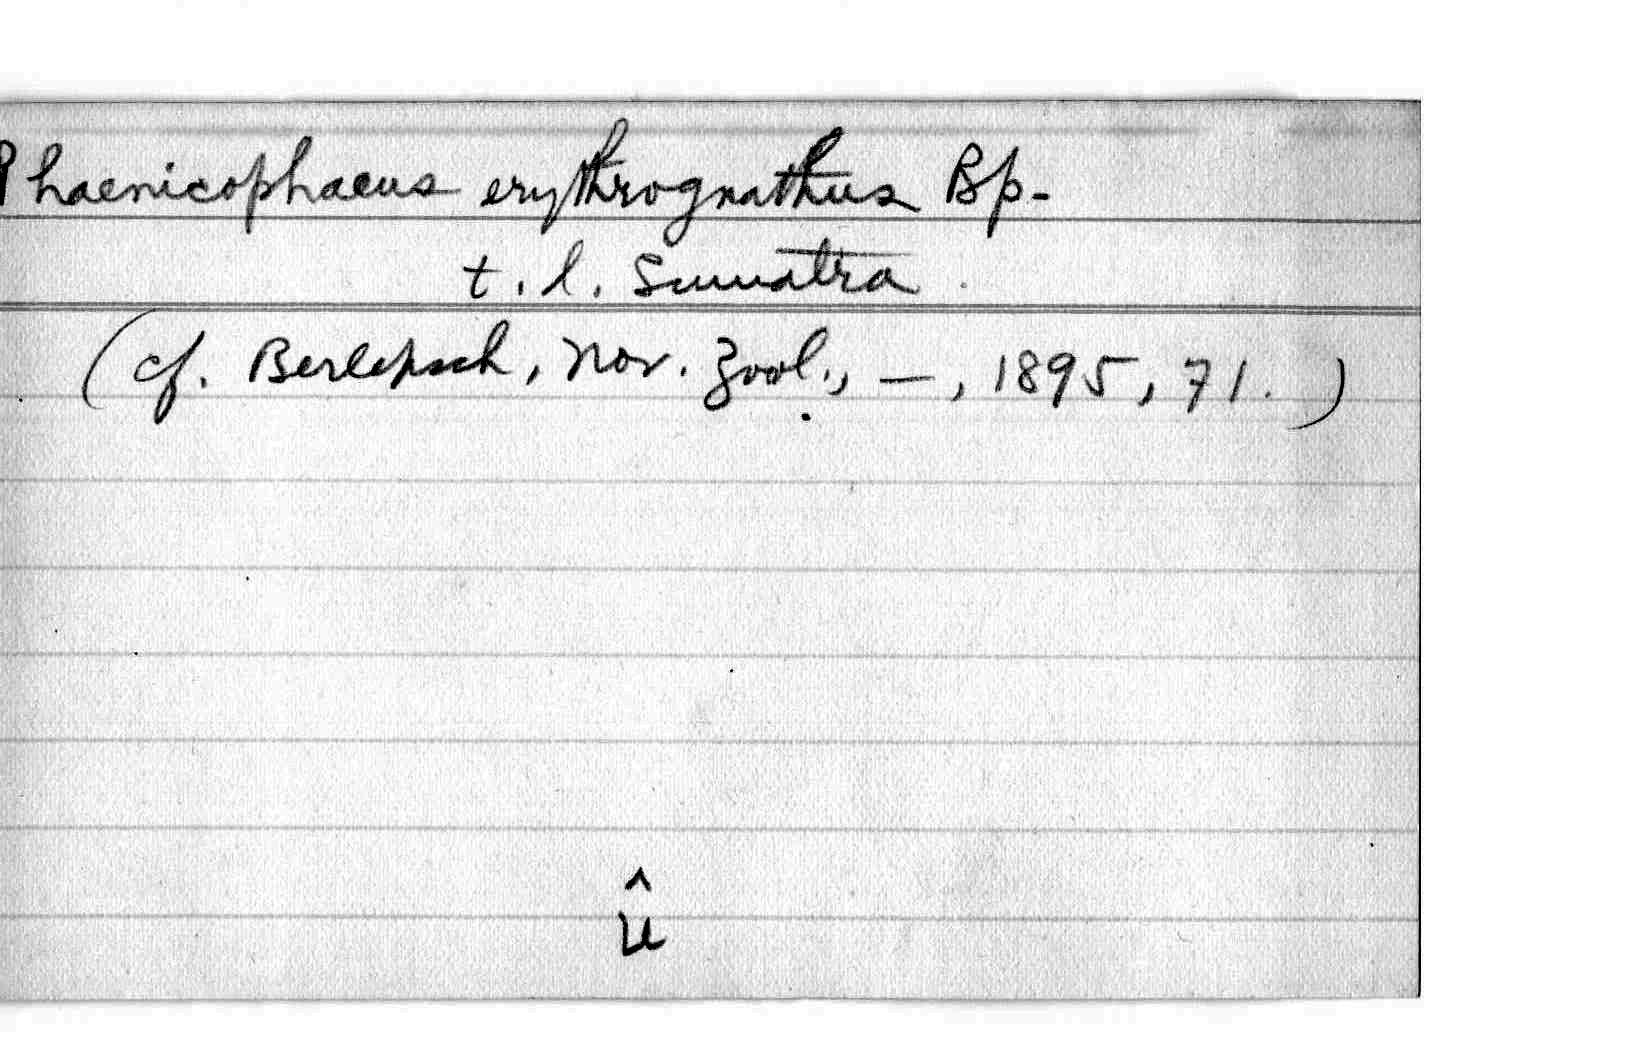 Phaenicophaeus erythrognathus Bp.
t. l. Sumatra.
(cf. Berlepsch, Nov. Zool., —, 1895, 71.)
û